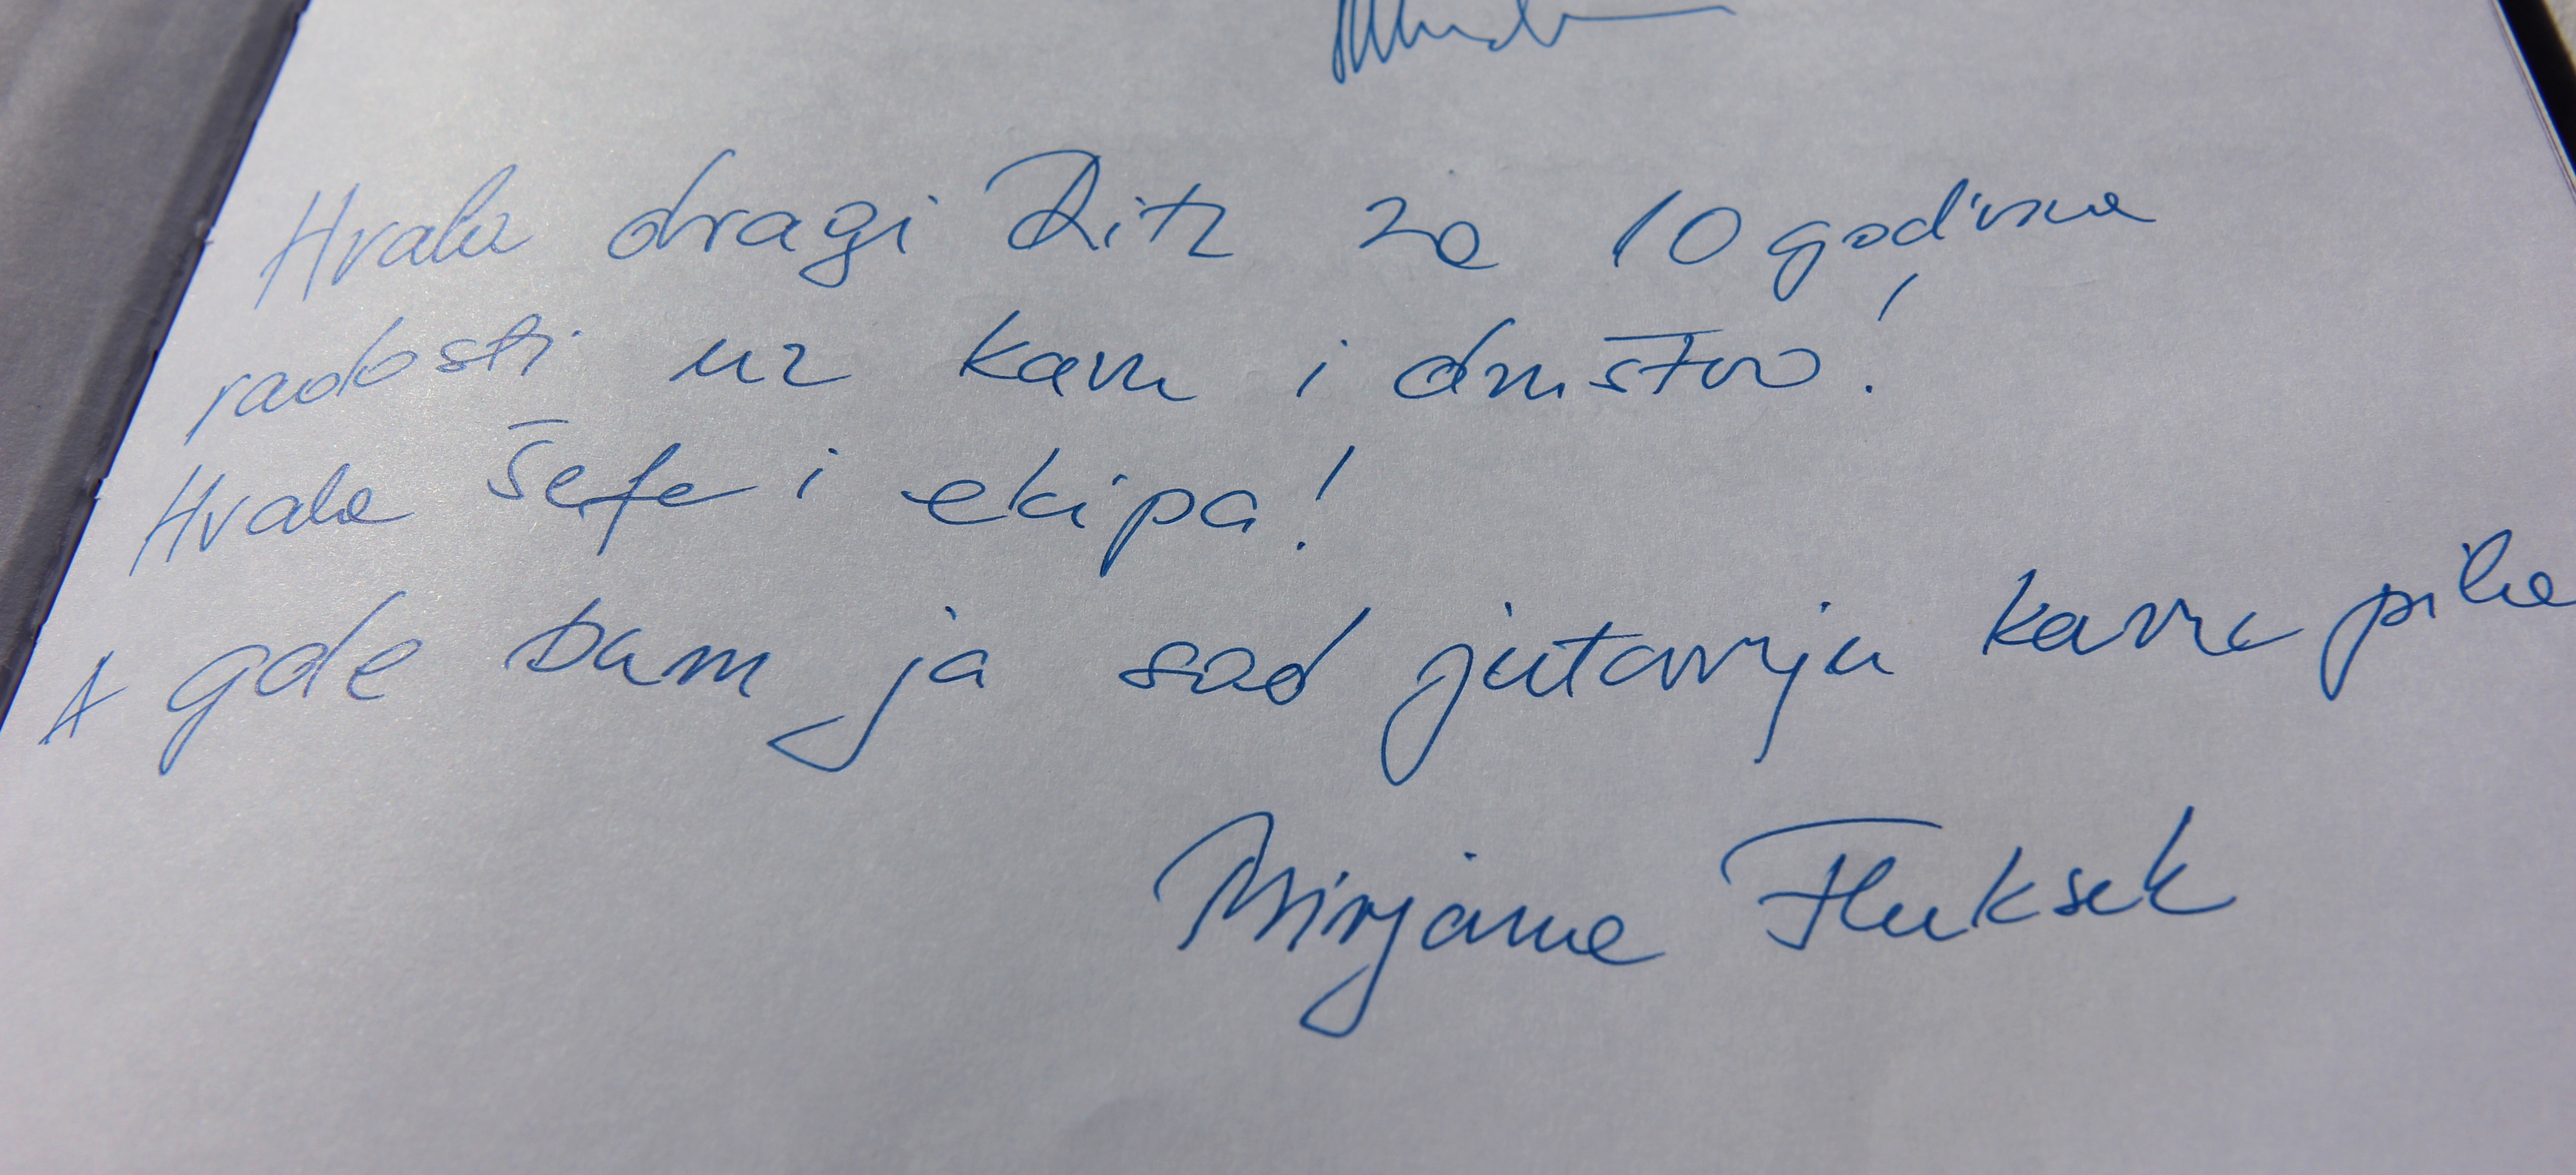 Hvala dragi Ritz za 10 godina
radosti uz kavu i društvo!
Hvala šefe i ekipa!
A gde bum ja sad jutarnju kavu pila
Mirjana Fluksek